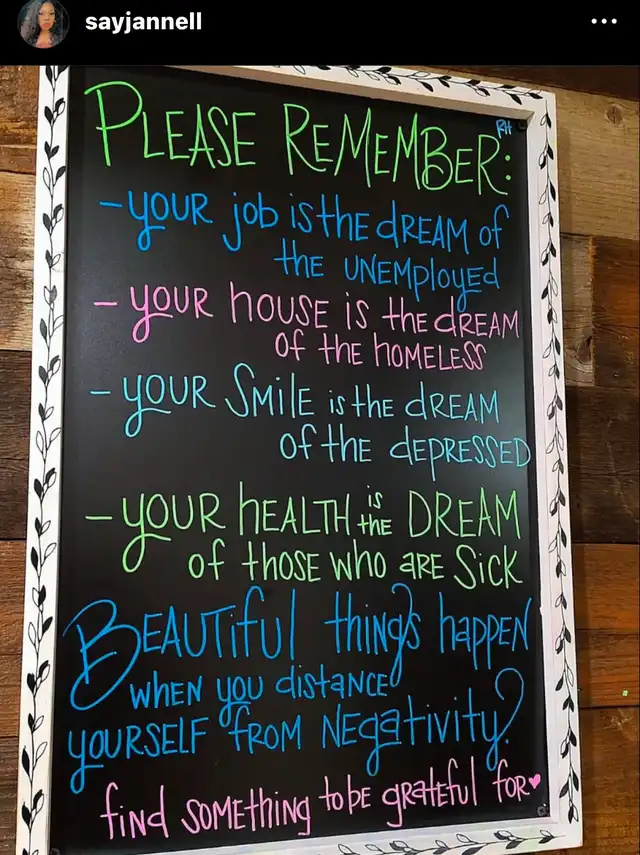 sayjannell
RH
PLEASE REMEMBER:
-YOUR job is the dREAM of
the UNEMployEd
- YOUR hOUSE is the dREAM
of the hOMELESS
- YOUR SMiLE is the dREAM
of the dEPRESSED
- YOUR hEALTH is the DREAM
of thOSE who ARE Sick
BEAUTifUl things happEN
whEN you distANCE
YOURSELF fROM NEgativity.
find SOMEthing to bE gRAtEful foR♥